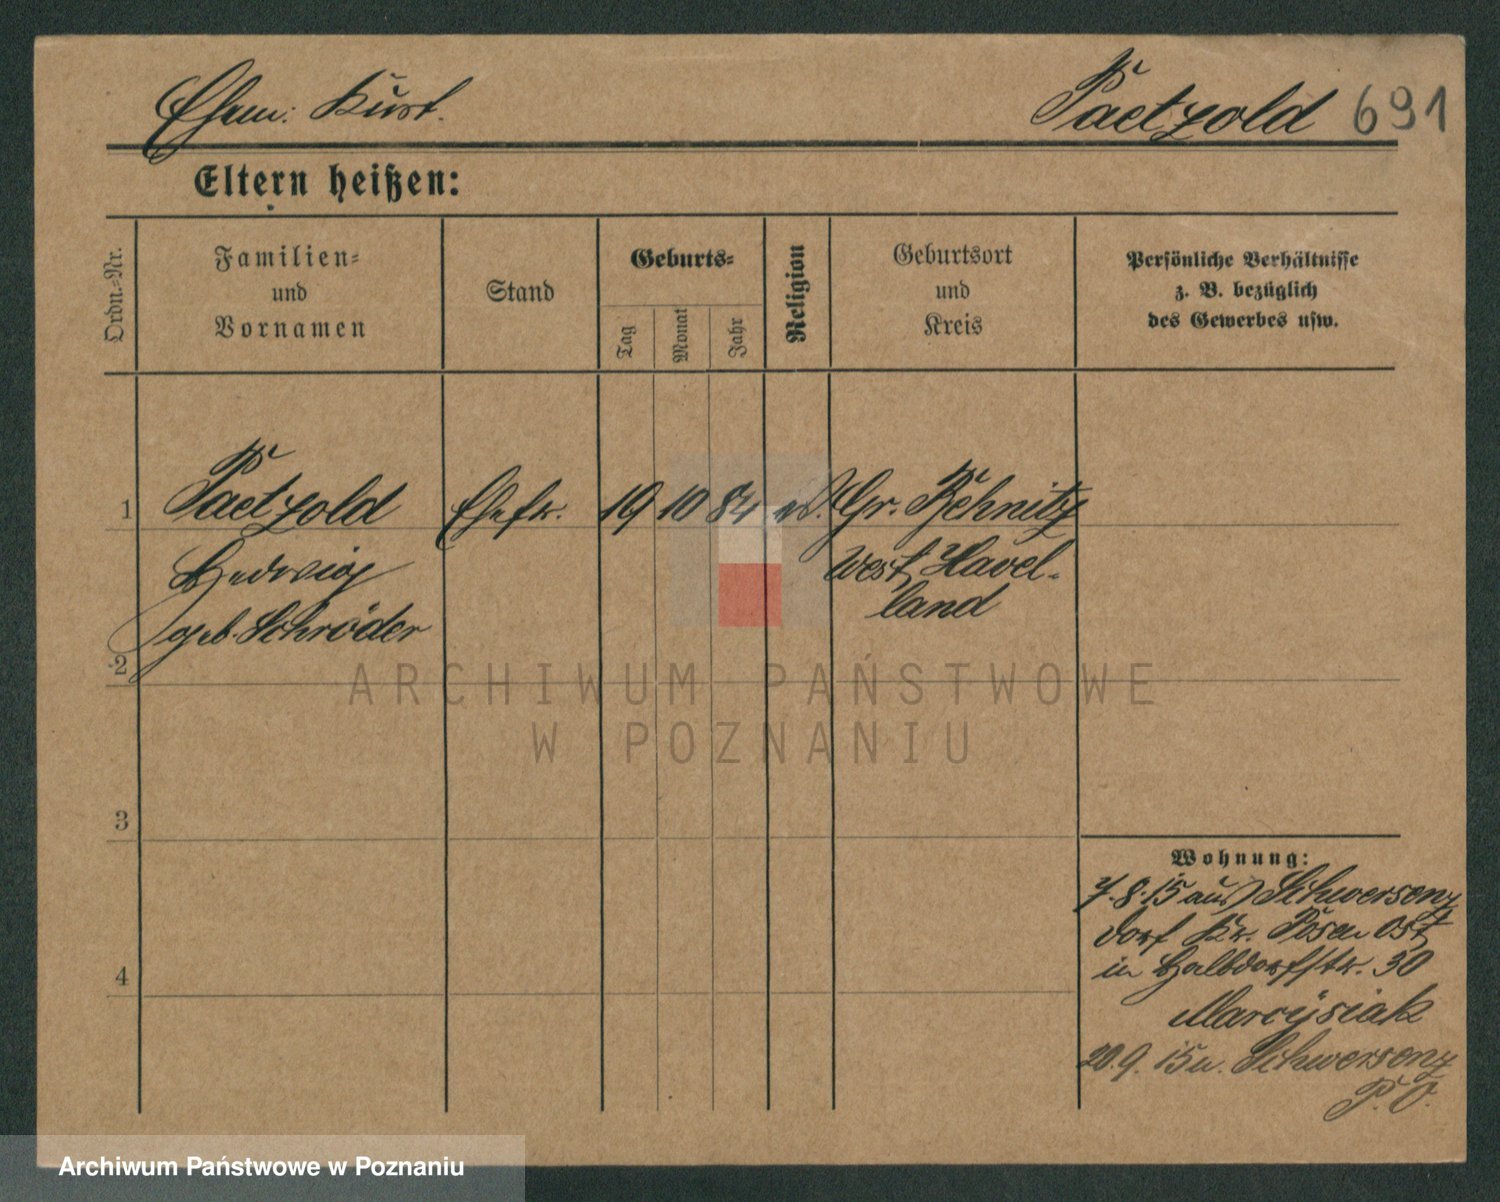 Ehem: Kurt. Paetzold 691
Eltern heißen:
Ordn.=Nr.
Familien=
und
Vornamen
Stand
Geburts=
Tag
Monat
Jahr
Religion
Geburtsort
und
Kreis
Persönliche Verhältnisse
z. B. bezüglich
des Gewerbes usw.
1 Paetzold Ehefr. 19 10 84 ev. Gr. Behnitz
Hedwig West Havel-
geb. Schröder land
2
3
4
Wohnung:
7.8.15 aus Schwersenz
dorf Kr. Posen Ost
in Halbdorfstr. 30
Marcysiak
20.9.15 n. Schwersenz
P.O.
ARCHIWUM PAŃSTWOWE
W POZNANIU
Archiwum Państwowe w Poznaniu